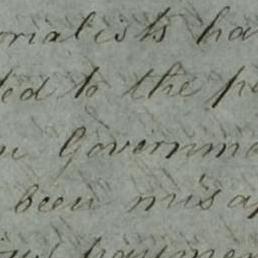 orialists ha
ed to the p
Governm
been misap
paymen